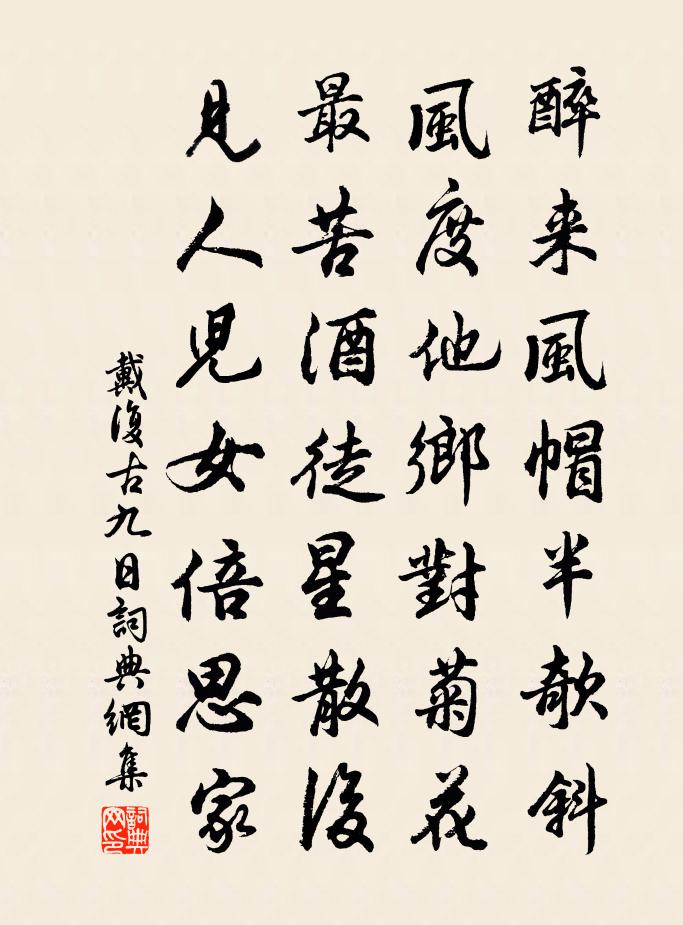 醉来風帽半欹斜
風度他鄉對菊花
最苦酒徒星散後
見人兒女倍思家
戴復古九日詞典網集
詞典网印